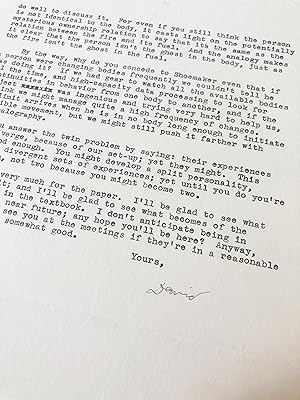 do well to discuss it. For even if you still think the person
is not identical to the body, it casts light on the potentially
mysterious ownership relation to say that it's the same as the
relation between the fire and its fuel. And the analogy makes
it clear that the person isn't the ghost in the body, just as
the fire isn't the ghost in the fuel.
By the way, why do you concede to Shoemaker even that if
a person were changing bodies frequently we couldn't tell he
was doing it? If we had gear to watch all the available bodies
all the time, and high-capacity data processing to look for
continuities in behavior from one body to another, and if the
was ingenious and trying very hard to help us,
think we might manage quite a high frequency of changes.
limit arrives when he is in no body long enough to initiate
movement, but we might still push it farther with
answer the twin problem by saying: their experiences
because of our set-up; yet they might. This
good enough. You might develop a split personality,
divergent sets of experiences; yet until you do you're
not two because you might become two.
very much for the paper. I'll be glad to see what
it; and I'll be glad to see what becomes of the
in the textbook. I don't anticipate being in
near future; any hope you'll be here? Anyway,
see you at the meetings if they're in a reasonable
somewhat good.
Yours,
David